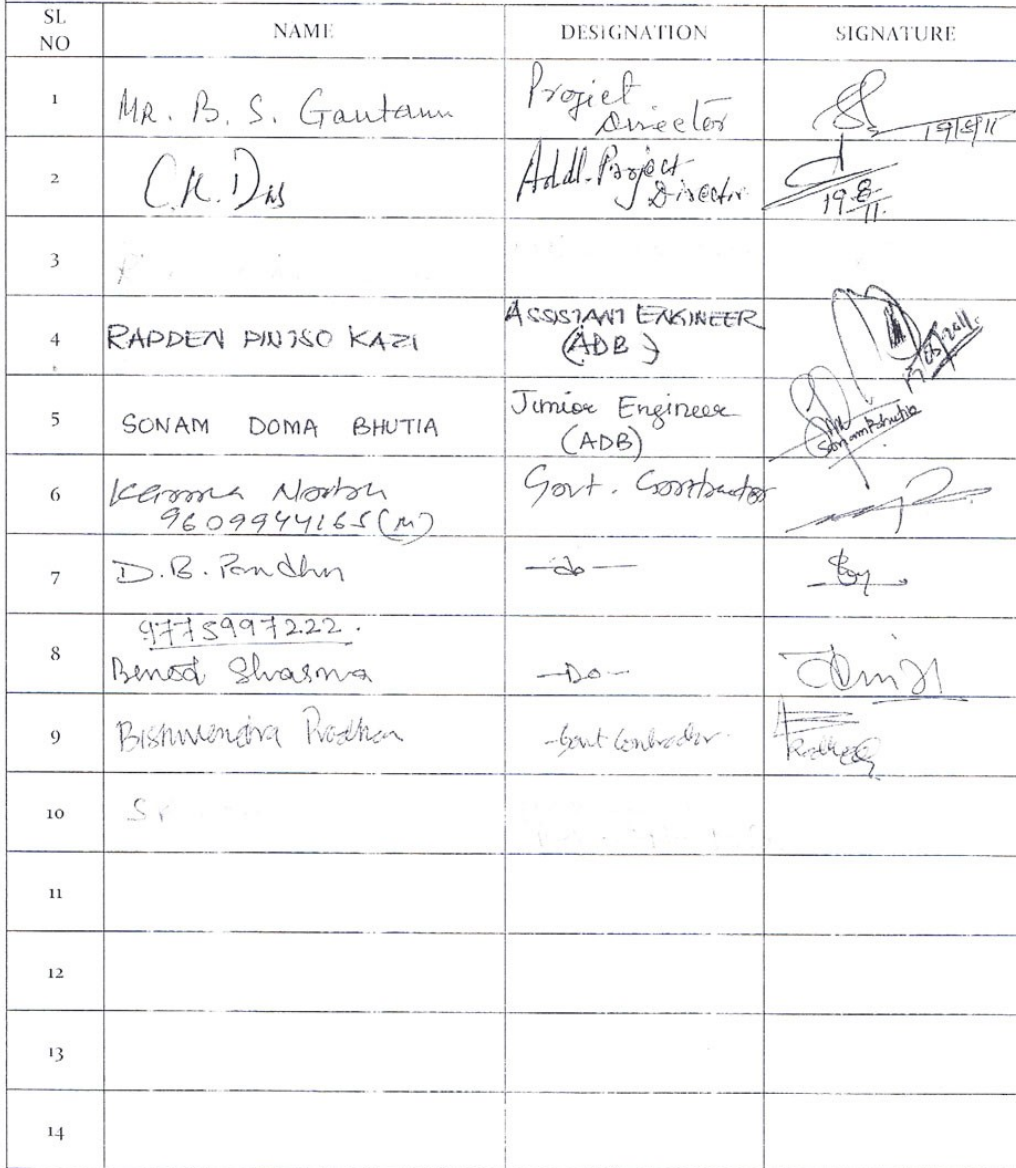 SL
NO
NAME
DESIGNATION
SIGNATURE
1
MR. B. S. Gautam
Project
Director
19/8/11
2
C.K. Das
Addl. Project
Director
19.8.11.
3
4
RAPDEN PINTSO KAZI
ASSISTANT ENGINEER
(ADB)
5
SONAM DOMA BHUTIA
Junior Engineer
(ADB)
Sonam Bhutia
6
Karma
9609944165(M)
Govt. Contractor
7
D.B. Pradhan
—do—
8
9775997222.
Benod Sharma
—Do—
9
Pradhan
Govt Contractor
10
11
12
13
14